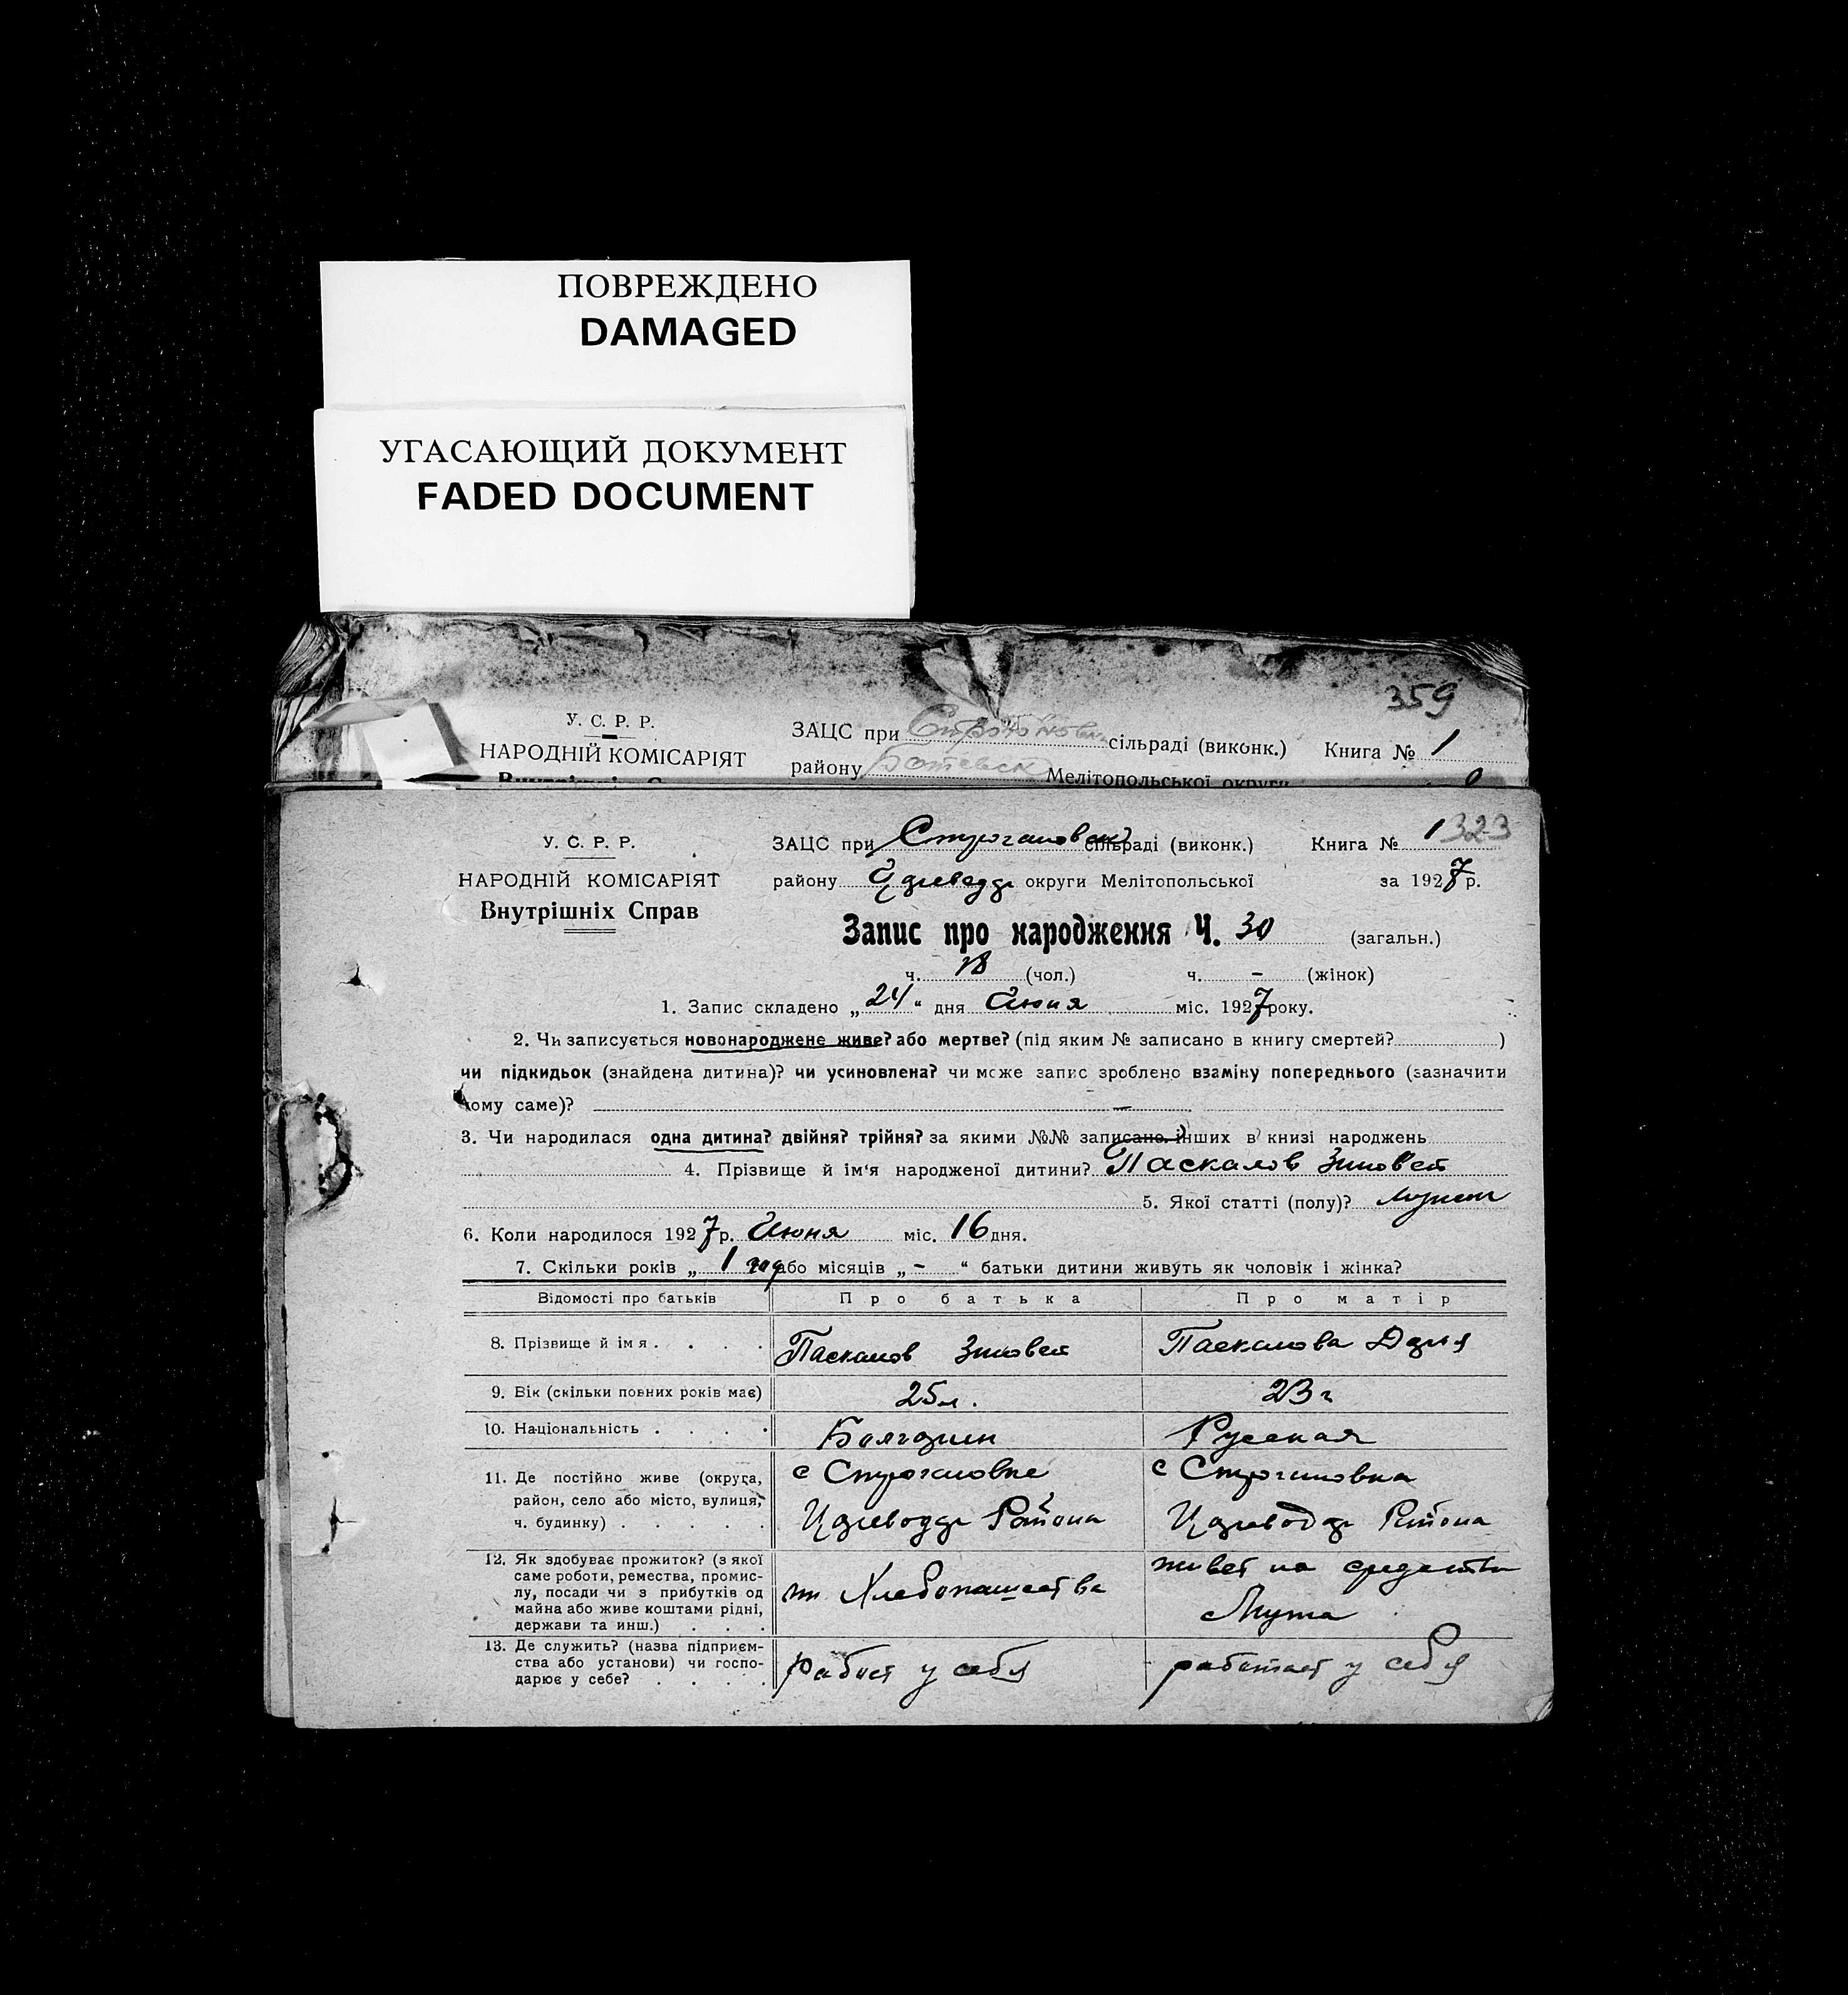 ПОВРЕЖДЕНО
DAMAGED
УГАСАЮЩИЙ ДОКУМЕНТ
FADED DOCUMENT
359
У. С. Р. Р.
НАРОДНІЙ КОМІСАРІЯТ
ЗАЦС при сільраді (виконк.) Книга № 1
району Ботевск Мелітопольської округи
323
У. С. Р. Р.
НАРОДНІЙ КОМІСАРІЯТ
Внутрішніх Справ
ЗАЦС при Строгановск сільраді (виконк.) Книга № 1
району Цареводар округи Мелітопольської за 1927 р.
Запис про народження Ч. 30 (загальн.)
ч. 18 (чол.) ч. - (жінок)
1. Запис складено „24“ дня Июня міс. 1927 року.
2. Чи записується новонароджене живе? або мертве? (під яким № записано в книгу смертей? )
чи підкидьок (знайдена дитина)? чи усиновлена? чи може запис зроблено взаміну попереднього (зазначити
чому саме)? —
3. Чи народилася одна дитина? двійня? трійня? за якими №№ записано інших в книзі народжень
4. Прізвище й ім‘я народженої дитини? Паскалов Зиновей
5. Якої статті (полу)?
6. Коли народилося 1927 р. Июня міс. 16 дня.
7. Скільки років „ 1 год або місяців „ - “ батьки дитини живуть як чоловік і жінка?
Відомості про батьків Про батька Про матір
8. Прізвище й ім я . . . . Паскалов Зиновей Паскалова Дария
9. Вік (скільки повних років має) 25 л. 23 г
10. Національність . . . . Болгарин Русская
11. Де постійно живе (округа, с Строгановке с Строгановка
район, село або місто, вулиця, Цареводар Района Цареводар Района
ч. будинку) . . . . .
12. Як здобуває прожиток? (з якої живет на средства
саме роботи, ремества, промис-
лу, посади чи з прибутків од Хлебопашества
майна або живе коштами рідні, Мужа
держави та инш.) . . .
13. Де служить? (назва підприєм-
ства або установи) чи госпо- у себя работает у себя
дарює у себе? . . . .